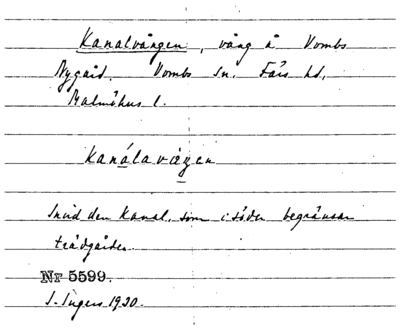 Kanalvången, vång å Vombs
Nygård. Vombs sn. Färs hd,
Malmöhus l.
kanálavæŋen
Invid den kanal, som i söder begränsar
trädgården.
Nr 5599.
I. Ingers 1920.